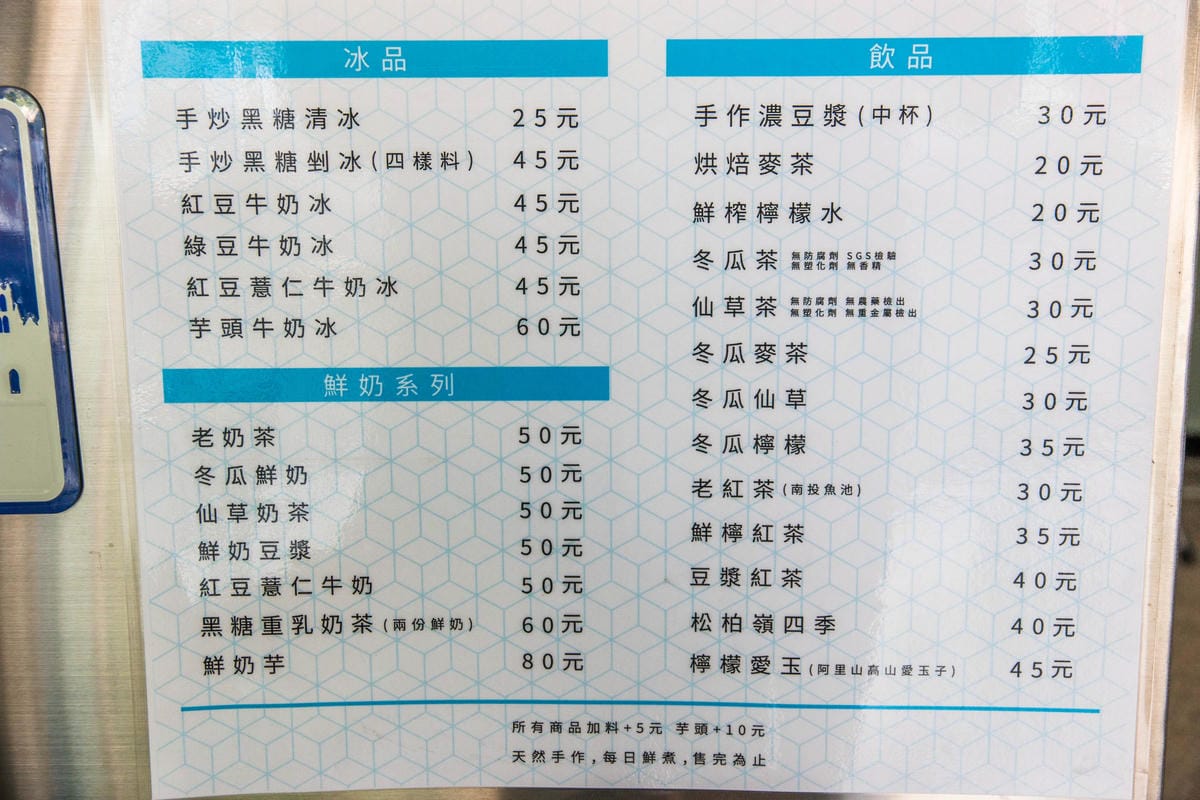 冰品
手炒黑糖清冰 25元
手炒黑糖剉冰(四樣料) 45元
紅豆牛奶冰 45元
綠豆牛奶冰 45元
紅豆薏仁牛奶冰 45元
芋頭牛奶冰 60元
鮮奶系列
老奶茶 50元
冬瓜鮮奶 50元
仙草奶茶 50元
鮮奶豆漿 50元
紅豆薏仁牛奶 50元
黑糖重乳奶茶(兩份鮮奶) 60元
鮮奶芋 80元
飲品
手作濃豆漿(中杯) 30元
烘焙麥茶 20元
鮮榨檸檬水 20元
冬瓜茶 無防腐劑 SGS檢驗 30元
無塑化劑 無香精
仙草茶 無防腐劑 無農藥檢出 30元
無塑化劑 無重金屬檢出
冬瓜麥茶 25元
冬瓜仙草 30元
冬瓜檸檬 35元
老紅茶(南投魚池) 30元
鮮檸紅茶 35元
豆漿紅茶 40元
松柏嶺四季 40元
檸檬愛玉(阿里山高山愛玉子) 45元
所有商品加料+5元 芋頭+10元
天然手作,每日鮮煮,售完為止